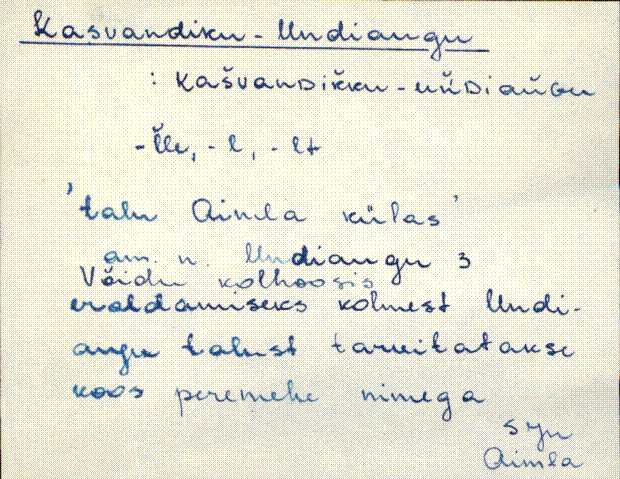 Kasvandiku-Undiangu
: kašvanDiǩku-uňDiaňGu
-l̆le, -l, -lt
'talu Aimla külas'
am. n. Undiangu 3
Võidu kolhoosis
eraldamiseks kolmest Undi-
angu talust tarvitatakse
koos peremehe nimega
Syn
Aimla